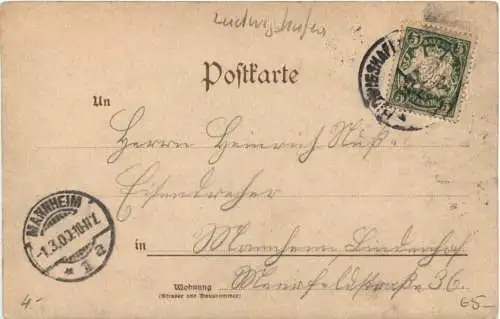 Ludwigshafen
Postkarte
An
Herrn Heinrich Nuß
Eisendreher
in Mannheim Lindenhof
Meerfeldstraße 36.
Wohnung
(Strasse und Hausnummer)
MANNHEIM
1.3.00. 10-11 V.
4.-
65-